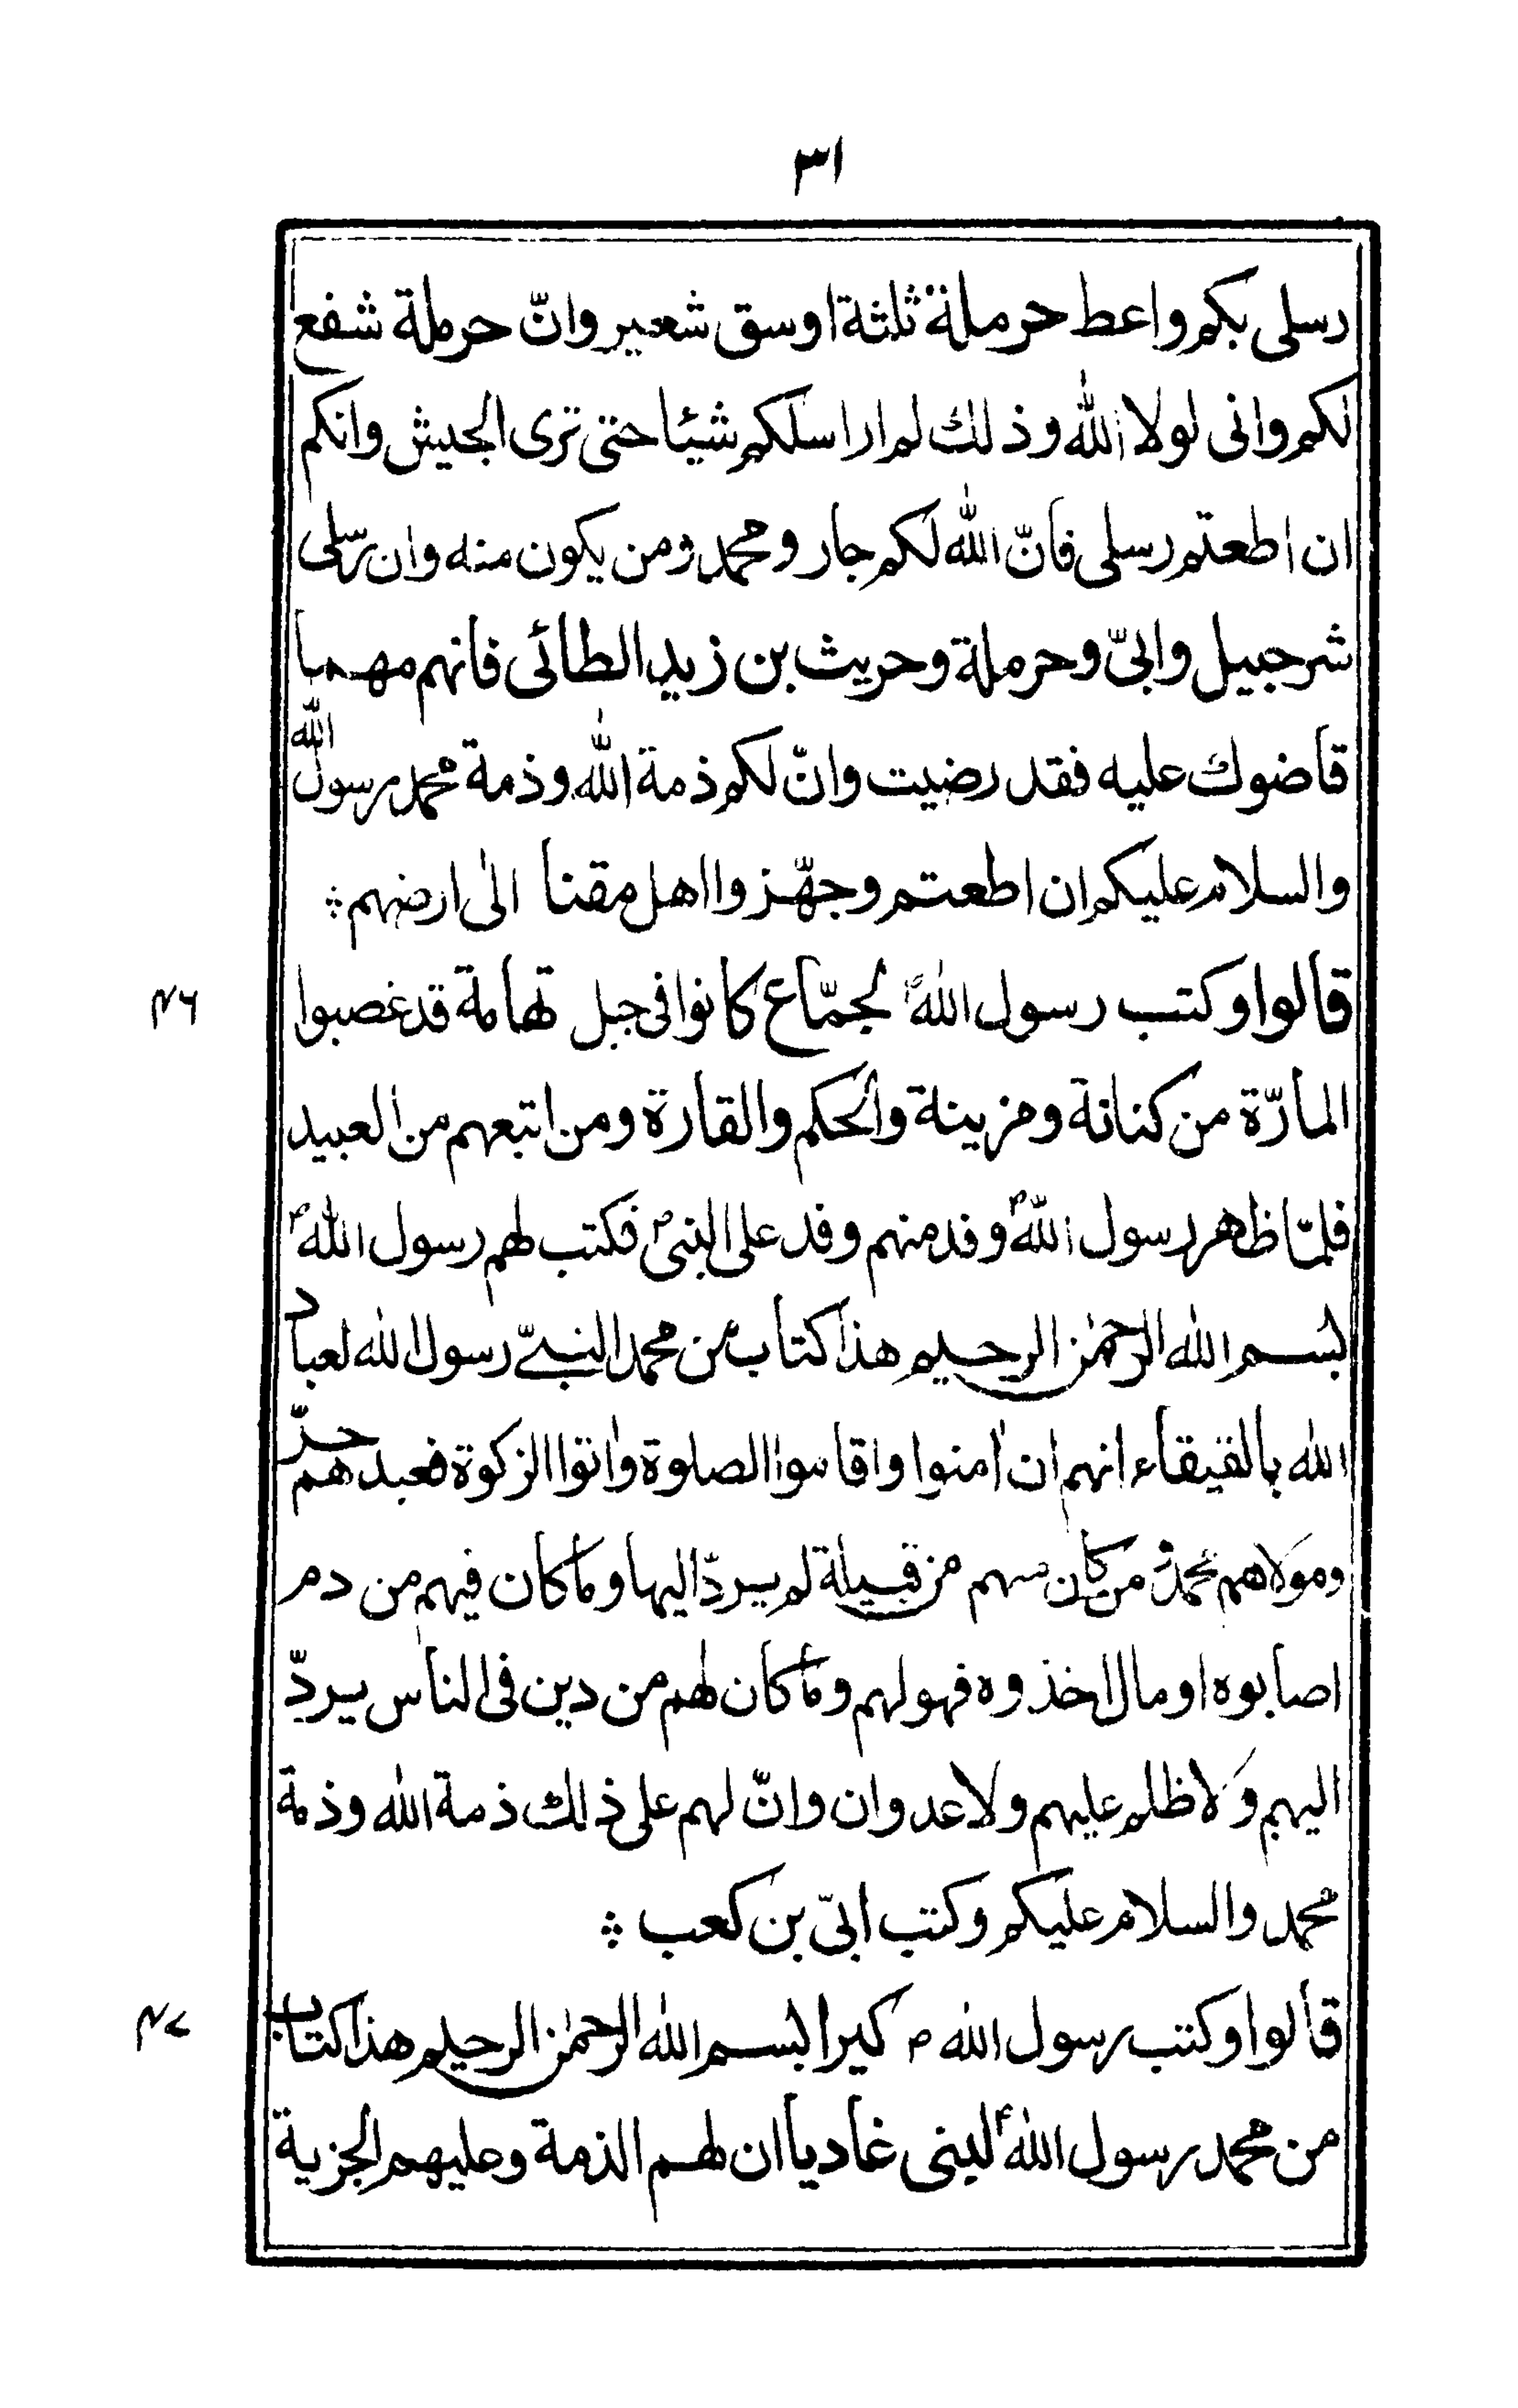 ٣١
رسلى بكم واعط حرملة ثلثة اوسق شعير وانّ حرملة شفع
لكم وانى لولا الله وذلك لم اراسلكم شيئا حتى ترى الجيش وانكم
ان اطعتم رسلى فانّ الله لكم جار ومحمد ومن يكون منه وان رسلى
شرحبيل وابىّ وحرملة وحريث بن زيد الطائى فانهم مهما
قاضوك عليه فقد رضيت وانّ لكم ذمة الله وذمة محمد رسول الله
والسلام عليكم ان اطعتم وجهّزوا اهل مقنا الى ارضهم ؞
٤٦ قالوا وكتب رسول الله ؐ لجمّاع كانوا فى جبل تهامة قد غصبوا
المارّة من كنانة ومزينة والحكم والقارة ومن اتبعهم من العبيد
فلمّا ظهر رسول الله ؐ وفد منهم وفد على النبى ؐ فكتب لهم رسول الله ؐ
بسم الله الرحمٰن الرحيم هذا كتاب من محمد النبىّ رسول الله لعباد
الله بالفيقاء انهم ان اٰمنوا واقاموا الصلوة واتوا الزكوة فعبدهم حرّ
ومولاهم محمدؐ من كان منهم من قبيلة لم يردّ اليها وما كان فيهم من دم
اصابوه او مال اخذوه فهو لهم وما كان لهم من دين فى الناس يردّ
اليهم وَلا ظلم عليهم ولا عدوان وانّ لهم على ذلك ذمة الله وذمة
محمد والسلام عليكم وكتب ابىّ بن كعب ؞
٤٧ قالوا وكتب رسول الله ؐ كيرا بسم الله الرحمٰن الرحيم هذا كتاب
من محمد رسول الله ؐ لبنى غاديا ان لهم الذمة وعليهم الجزية